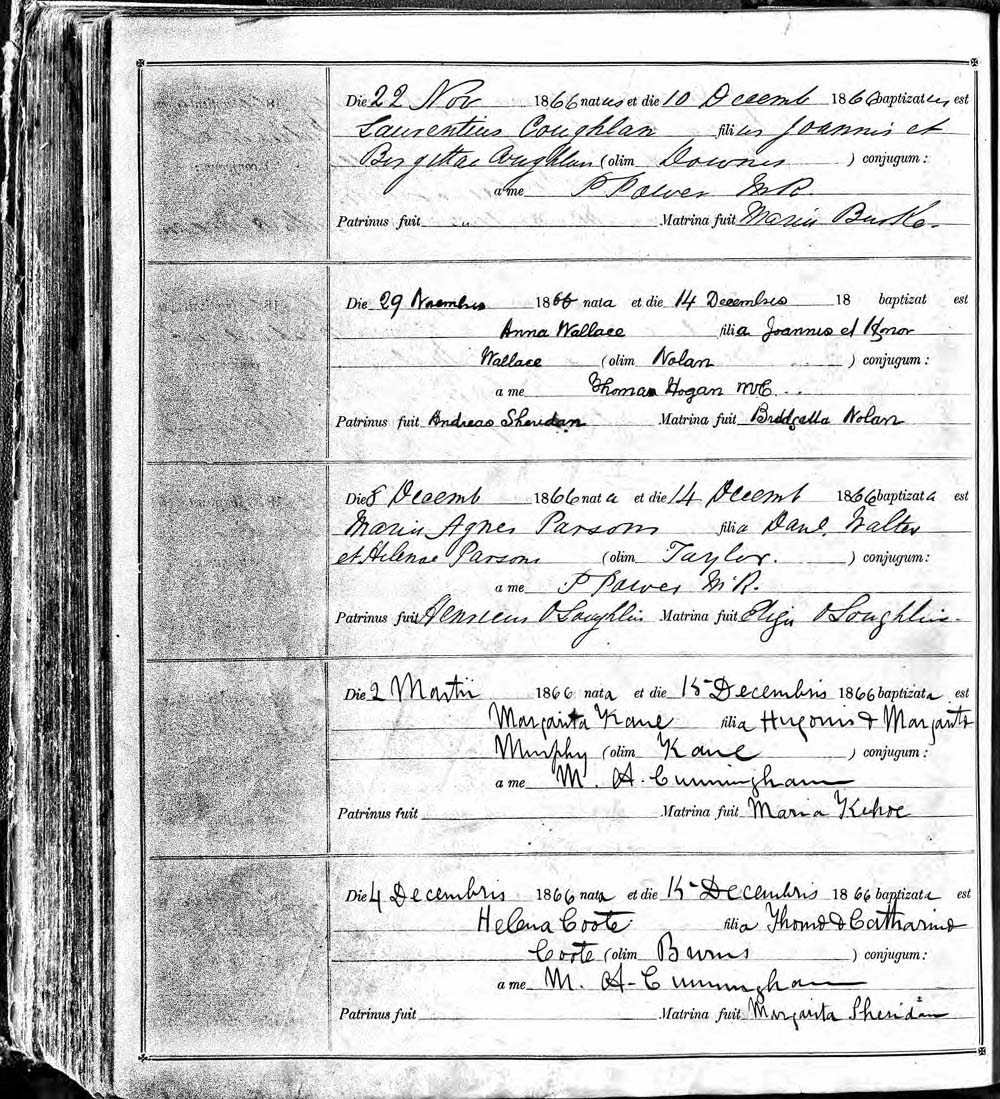 Die 22 Nov 1866 natus et die 10 Decemb 1866 baptizatus est
Laurentius Coughlan filius Joannis et
Birgittae Coughlan (olim Downes ) conjugum:
a me P Power M.R.
Patrinus fuit Matrina fuit Maria Burke.
Die 29 Novembris 1866 nata et die 14 Decembris 18 baptizat est
Anna Wallace filia Joannis et Honor
Wallace (olim Nolan ) conjugum:
a me Thomas Hogan
Patrinus fuit Andreas Sheridan Matrina fuit Nolan
Die 8 Decemb 1866 nata et die 14 Decemb 1866 baptizata est
Maria Agnes Parsons filia Danl. Walter
et Helenae Parsons (olim Taylor. ) conjugum:
a me P Power M.R.
Patrinus fuit Henricus O'Loughlin Matrina fuit Eliza O'Loughlin.
Die 2 Martii 1866 nata et die 15 Decembris 1866 baptizata est
Margarita Kane filia Hugonis & Margarita
Murphy (olim Kane ) conjugum:
a me M. A. Cunningham
Patrinus fuit Matrina fuit Maria Kehoe
Die 4 Decembris 1866 nata et die 15 Decembris 1866 baptizata est
Helena Coote filia Thomae & Catharinae
Coote (olim Burns ) conjugum:
a me M. A. Cunningham
Patrinus fuit Matrina fuit Margarita Sheridan